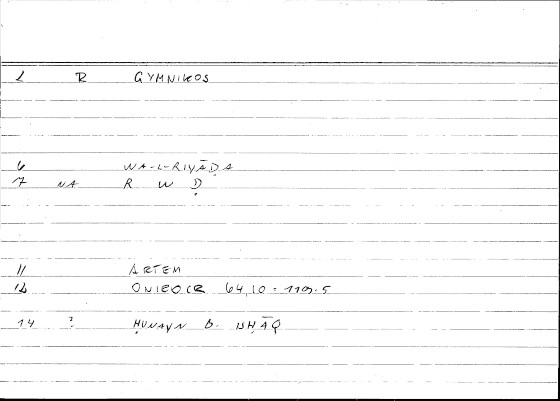 1 R GYMNIKOS
6 WA-L-RIYĀḌA
7 NA R W Ḍ
11 ARTEM
12 ONIROCR 64,10 = 119.5
14 ? ḤUNAYN B. ISḤĀQ